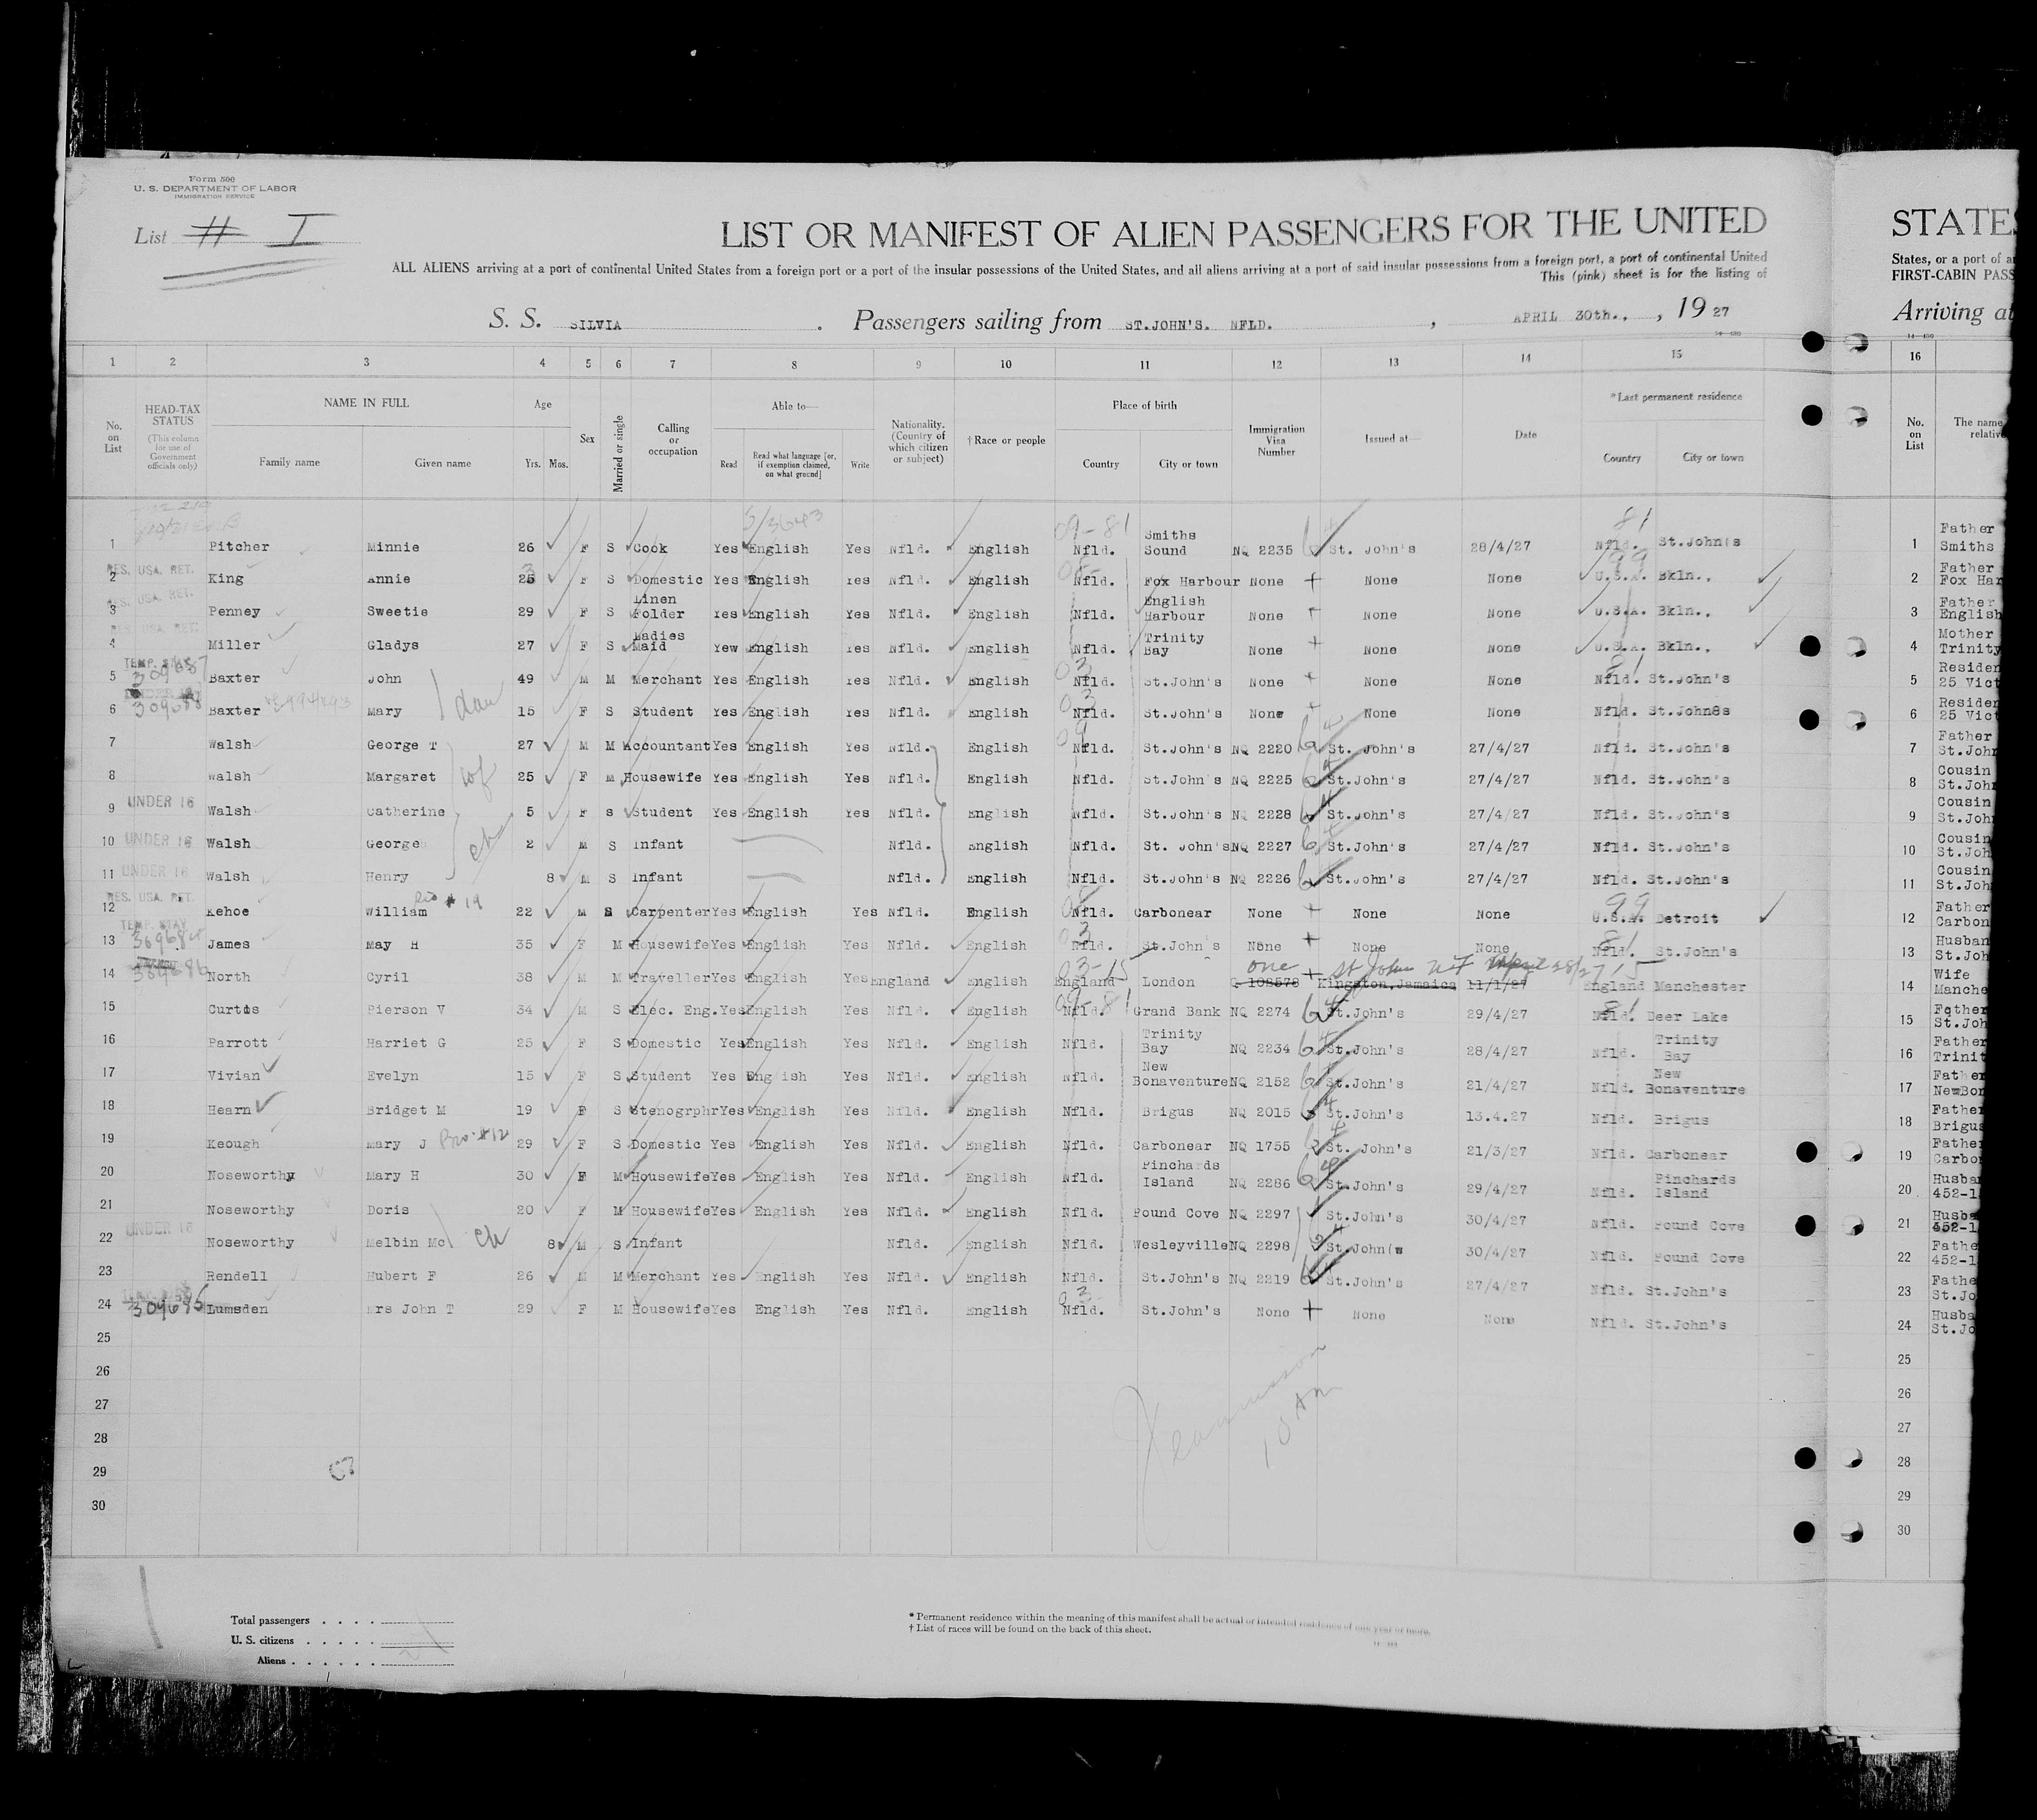 Form 500
U. S. DEPARTMENT OF LABOR
IMMIGRATION SERVICE
List # I
LIST OR MANIFEST OF ALIEN PASSENGERS FOR THE UNITED
STATES
ALL ALIENS arriving at a port of continental United States from a foreign port or a port of the insular possessions of the United States, and all aliens arriving at a port of said insular possessions from a foreign port, a port of continental United
States, or a port of
This (pink) sheet is for the listing of
FIRST-CABIN PASS
S. S. SILVIA. Passengers sailing from ST.JOHN'S. NFLD., APRIL 30th., , 19 27
Arriving at
1 2 3 4 5 6 7 8 9 10 11 12 13 14 15 16
No. on List
HEAD-TAX STATUS
(This column for use of Government officials only)
NAME IN FULL
Family name Given name
Age
Yrs. Mos.
Sex
Married or single
Calling or occupation
Able to—
Read
Read what language [or, if exemption claimed, on what ground]
Write
Nationality. (Country of which citizen or subject)
† Race or people
Place of birth
Country City or town
Immigration Visa Number
Issued at—
Date
*Last permanent residence
Country City or town
No. on List
The name
relative
5/3643 09-81 81
1 Pitcher Minnie 26 F S Cook Yes English Yes Nfld. English Nfld. Smiths Sound NQ 2235 St. John's 28/4/27 Nfld. St.John's 1 Father Smiths
2 RES. USA. RET. King Annie 25 F S Domestic Yes English Yes Nfld. English Nfld. Fox Harbour None None None U.S.A. Bkln., 2 Father Fox Har
3 RES. USA. RET. Penney Sweetie 29 F S Linen Folder Yes English Yes Nfld. English Nfld. English Harbour None None None U.S.A. Bkln., 3 Father English
4 RES. USA. RET. Miller Gladys 27 F S Ladies Maid Yew English Yes Nfld. English Nfld. Trinity Bay None None None U.S.A. Bkln., 4 Mother Trinity
5 TEMP. STAY 309687 Baxter John 49 M M Merchant Yes English Yes Nfld. English Nfld. St.John's None None None Nfld. St.John's 5 Residen 25 Vict
6 309688 Baxter Mary dau 15 F S Student Yes English Yes Nfld. English Nfld. St.John's None None None Nfld. St.John8s 6 Residen 25 Vict
7 Walsh George T 27 M M Accountant Yes English Yes Nfld. English Nfld. St.John's NQ 2220 St. John's 27/4/27 Nfld. St.John's 7 Father St.John
8 Walsh Margaret wf 25 F M Housewife Yes English Yes Nfld. English Nfld. St.John's NQ 2225 St.John's 27/4/27 Nfld. St.John's 8 Cousin St.John
9 UNDER 16 Walsh Catherine 5 F S Student Yes English Yes Nfld. English Nfld. St.John's NQ 2228 St.John's 27/4/27 Nfld. St.John's 9 Cousin St.John
10 UNDER 16 Walsh George chn 2 M S Infant Nfld. English Nfld. St. John's NQ 2227 St.John's 27/4/27 Nfld. St.John's 10 Cousin St.Joh
11 UNDER 16 Walsh Henry 8 M S Infant Nfld. English Nfld. St.John's NQ 2226 St.John's 27/4/27 Nfld. St.John's 11 Cousin St.Joh
12 RES. USA. RET. Kehoe William # 19 22 M S Carpenter Yes English Yes Nfld. English Nfld. Carbonear None None None U.S.A. Detroit 12 Father Carbon
13 TEMP. STAY James May H 35 F M Housewife Yes English Yes Nfld. English Nfld. St.John's None None None Nfld. St.John's 13 Husban St.Joh
14 309686 North Cyril 38 M M Traveller Yes English Yes England English England London Q 108578 Kingston,Jamaica 11/1/27 one St John NF April 28/27 England Manchester 14 Wife Manche
15 Curtis Pierson V 34 M S Elec. Eng. Yes English Yes Nfld. English Nfld. Grand Bank NQ 2274 St.John's 29/4/27 Nfld. Deer Lake 15 Father St.Joh
16 Parrott Harriet G 25 F S Domestic Yes English Yes Nfld. English Nfld. Trinity Bay NQ 2234 St.John's 28/4/27 Nfld. Trinity Bay 16 Father Trinit
17 Vivian Evelyn 15 F S Student Yes English Yes Nfld. English Nfld. New Bonaventure NQ 2152 St.John's 21/4/27 Nfld. New Bonaventure 17 Father NewBon
18 Hearn Bridget M 19 F S Stenogrphr Yes English Yes Nfld. English Nfld. Brigus NQ 2015 St.John's 13.4.27 Nfld. Brigus 18 Father Brigus
19 Keough Mary J Bro. #12 29 F S Domestic Yes English Yes Nfld. English Nfld. Carbonear NQ 1755 St. John's 21/3/27 Nfld. Carbonear 19 Father Carbon
20 Noseworthy Mary H 30 F M Housewife Yes English Yes Nfld. English Nfld. Pinchards Island NQ 2286 St.John's 29/4/27 Nfld. Pinchards Island 20 Husban 452-1
21 Noseworthy Doris 20 F M Housewife Yes English Yes Nfld. English Nfld. Pound Cove NQ 2297 St.John's 30/4/27 Nfld. Pound Cove 21 Husba 452-1
22 UNDER 16 Noseworthy Melbin Mc ch 8 M S Infant Nfld. English Nfld. Wesleyville NQ 2298 St.John(s 30/4/27 Nfld. Pound Cove 22 Fathe 452-1
23 Rendell Hubert F 26 M M Merchant Yes English Yes Nfld. English Nfld. St.John's NQ 2219 St.John's 27/4/27 Nfld. St.John's 23 Fathe St.Jo
24 309685 Lumsden Mrs John T 29 F M Housewife Yes English Yes Nfld. English Nfld. St.John's None None None Nfld. St.John's 24 Husba St.Jo
25 25
26 26
27 27
28 28
29 29
30 30
10 AM
Total passengers . . . .
U. S. citizens . . . . .
Aliens . . . . . .
* Permanent residence within the meaning of this manifest shall be actual or intended residence of one year or more.
† List of races will be found on the back of this sheet.